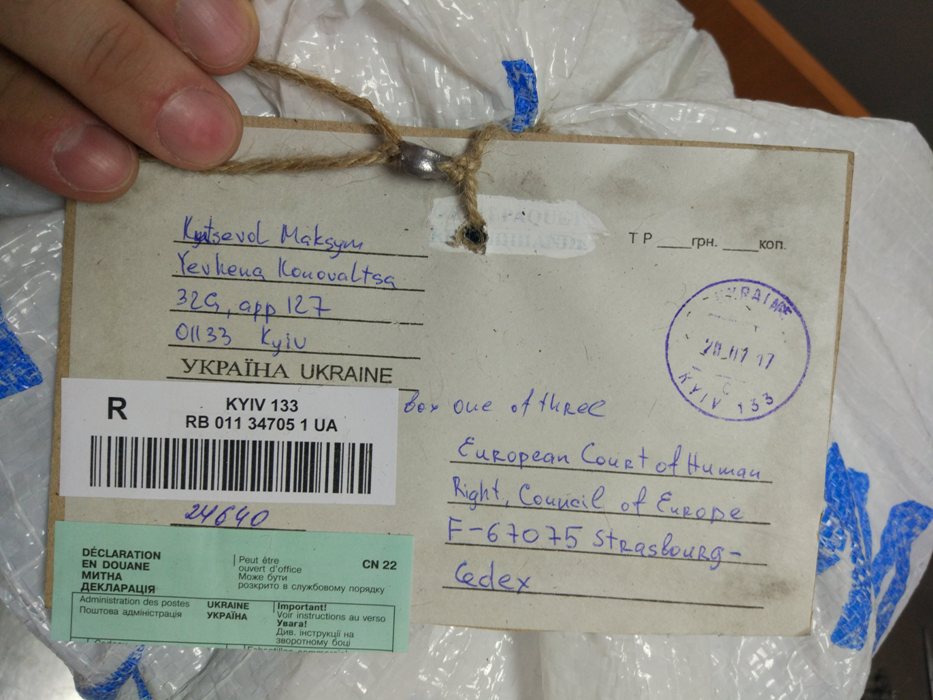 Kytsevol Maksym
Yevhena Konovaltsa
32G, app 127
01133 Kyiv
УКРАЇНА UKRAINE
Т Р ____грн. ____коп.
UKRAINE
KYIV 133
R
KYIV 133
RB 011 34705 1 UA
24640
box one of three
European Court of Human
Right, Council of Europe
F-67075 Strasbourg-
Cedex
DÉCLARATION
EN DOUANE
МИТНА
ДЕКЛАРАЦІЯ
Peut être
ouvert d'office
Може бути
розкрито в службовому порядку
CN 22
Administration des postes
Поштова адміністрація
UKRAINE
УКРАЇНА
Important!
Voir instructions au verso
Увага!
Див. інструкції на
зворотному боці